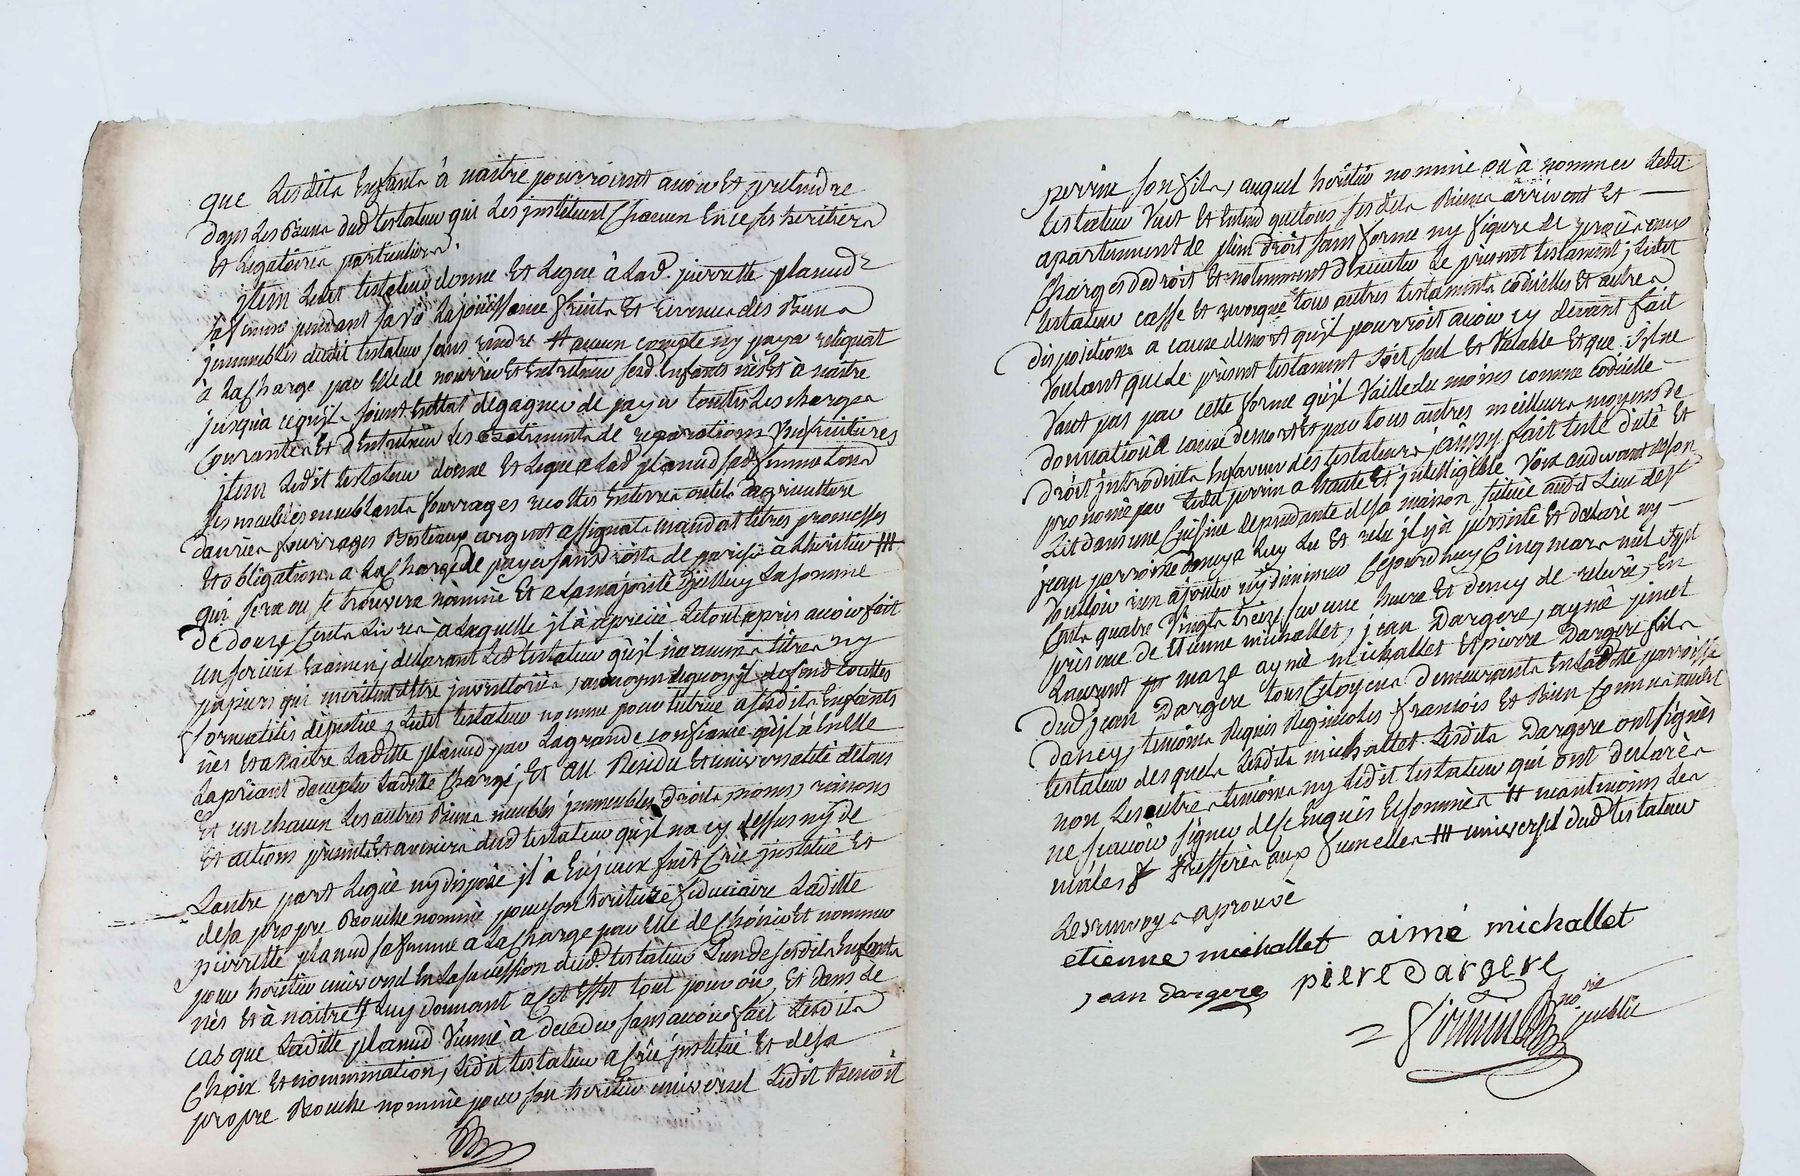 que Lesdits Enfants à naitre pourroient avoir Et pretendre
dans Les Biens dud testateur qui Les jnstituent Chacun En ce ses heritiers
Et Legataires particuliers.
jtem Ledit testateur donne Et Legue à Lad. pierrette planud
sa femme pendant sa vie La jouissance fruits Et revenus des Biens
jmmeubles dudit testateur sans rendre aucun compte ny payer reliquat
à La charge par Elle de nourrir Et Entretenir sesd. Enfants nés Et à naitre
jusqu'à ce qu'ils soient En Etat de gagner de payer touttes Les charges
Courantes Et d'Entretenir Les Batiments de reparations Usufruitieres
jtem Ledit testateur donne Et Legue a Lad planud sad femme tous
ses meubles meublants fourrages recoltes Enterrés outils dagriculture
danrées fourrages Bestiaux argent assignats mandat titres promesses
Et obligations a La Charge de payer sans droits de à Lheritier
qui sera ou se trouvera nommé Et a La majorité dicelluy La somme
De douze Cents Livres, a Laquelle jl à aprecié Le tout après avoir fait
un serieux Examen; declarant Led testateur qu'jl n'a aucuns titres ny
papiers qui meritent d'Etre jnventoriés, au moyen de quoy jl defend touttes
formalités de justice, Ledit testateur nomme pour tutrice a sesdits Enfants
nés Et a naitre Laditte planud par La grande confiance qu'jl à En Elle
La priant daccepter Laditte Charge, Et au Residu Et universalité de tous
Et un chacun Les autres Biens meubles jmmeubles droits noms, raisons
Et actions presents Et avenirs dud testateur qu'jl na cy dessus ny de
Lautre part Legué ny disposé jl à fait Créé jnstitué Et
desa propre Bouche nommé pour son heritiere fiduciaire Laditte
pierrette planud sa femme a La charge par Elle de Choisir Et nommer
pour heritier universel En La succession dud. testateur L'un de sesdits Enfants
nés Et à naitre # Luy donnant a Cet Effet tout pouvoir, Et dans Le
cas que Laditte planud Vienne à deceder sans avoir fait Lesdits
Choix Et nommination, Ledit testateur a Créé jnstitué Et desa
propre Bouche nommé pour son heritier universel Ledit Benoit
perrin son fils, auquel heritier nommé ou à nommer Ledit
testateur Veut Et Entend que tous ses dits Biens arrivent Et
apartiennent de plein droit sans forme ny figure de procès aux
Charges de droit Et notamment d'Executer Le present testament; Ledit
testateur casse Et revoque tous autres testaments codicilles Et autres
dispositions a cause de mort qu'jl pourroit avoir cy devant fait
Voulant que Le present testament soit seul Et Valable Et que S'jl ne
Vaut pas par cette forme qu'jl Vaille du moins comme codicille
donnation à cause de mort Et par tous autres meilleurs moyens de
droit jntroduits En faveur des testateurs, fait dicté Et
prononcé par Ledit perrin a haute Et jntelligible Voix au devant de son
Lit dans une Cuisine dependante de sa maison, située audit Lieu de St
jean La paroisse Luy Lu Et relu jl y à persisté Et declaré ny
Vouloir rien ajouter ny diminuer Cejourdhuy Cinq mars mil sept
Cents quatre Vingt treize sur une heure Et demy de relevée, En
presence de Etienne michallet, jean Dargere, ayné
Laurent maza aymé michallet Et pierre Dargere fils
dud jean Dargere tous Citoyens demeurants En Laditte parroisse
dancy, temoins Requis Regnicoles françois Et Bien Connus audit
testateur desquels Lesdits michallet Lesdits Dargere ont signés
non Les autres temoins ny Ledit testateur qui ont declarés
ne sçavoir signer de ce Enquis Et sommés # neantmoins Les
males Preferés aux fumelles # universel dud testateur
Les renvoys aprouvé
etienne michallet aimé michallet
jean dargere pierre dargere
no.re
public